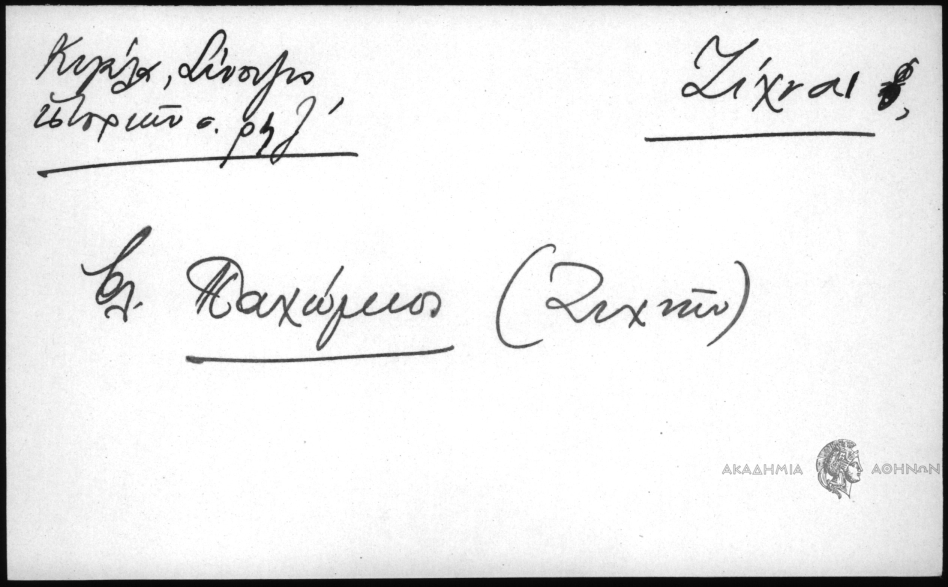 Κιγάλα, Σύνοψις
ἱστοριῶν σ. ρηζ΄
Ζίχναι
βλ. Παχώμιος (Ζιχνῶν)
ΑΚΑΔΗΜΙΑ ΑΘΗΝΩΝ